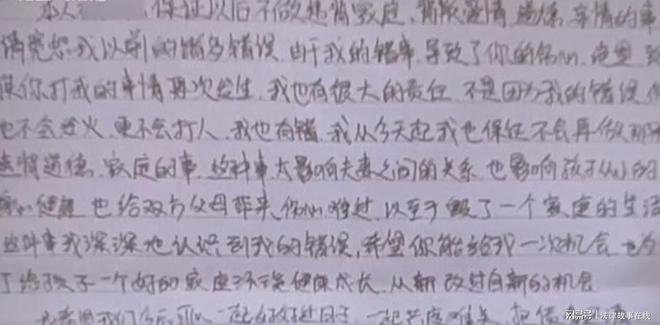 本人 保证以后不做违背家庭、背叛爱情 道德、亲情的事
请宽恕我以前的诸多错误 由于我的错事、导致了你的伤心、绝望
使你打我的事情再次发生、我也有很大的责任 不是因为我的错误
也不会发火 更不会打人、我也有错、我从今天起我也保证不会再做
违背道德、家庭的事、这种事太影响夫妻之间的关系 也影响孩子 的
健康 也给双方父母带来 伤心难过 以至于毁了一个家庭的生活
这件事我深深地认识到我的错误，希望你能给我一次机会 也为
了给孩子一个好的家庭环境健康成长、从新改过自新的机会
我 一起好好过日子、一起
搜狐号@法律故事在线